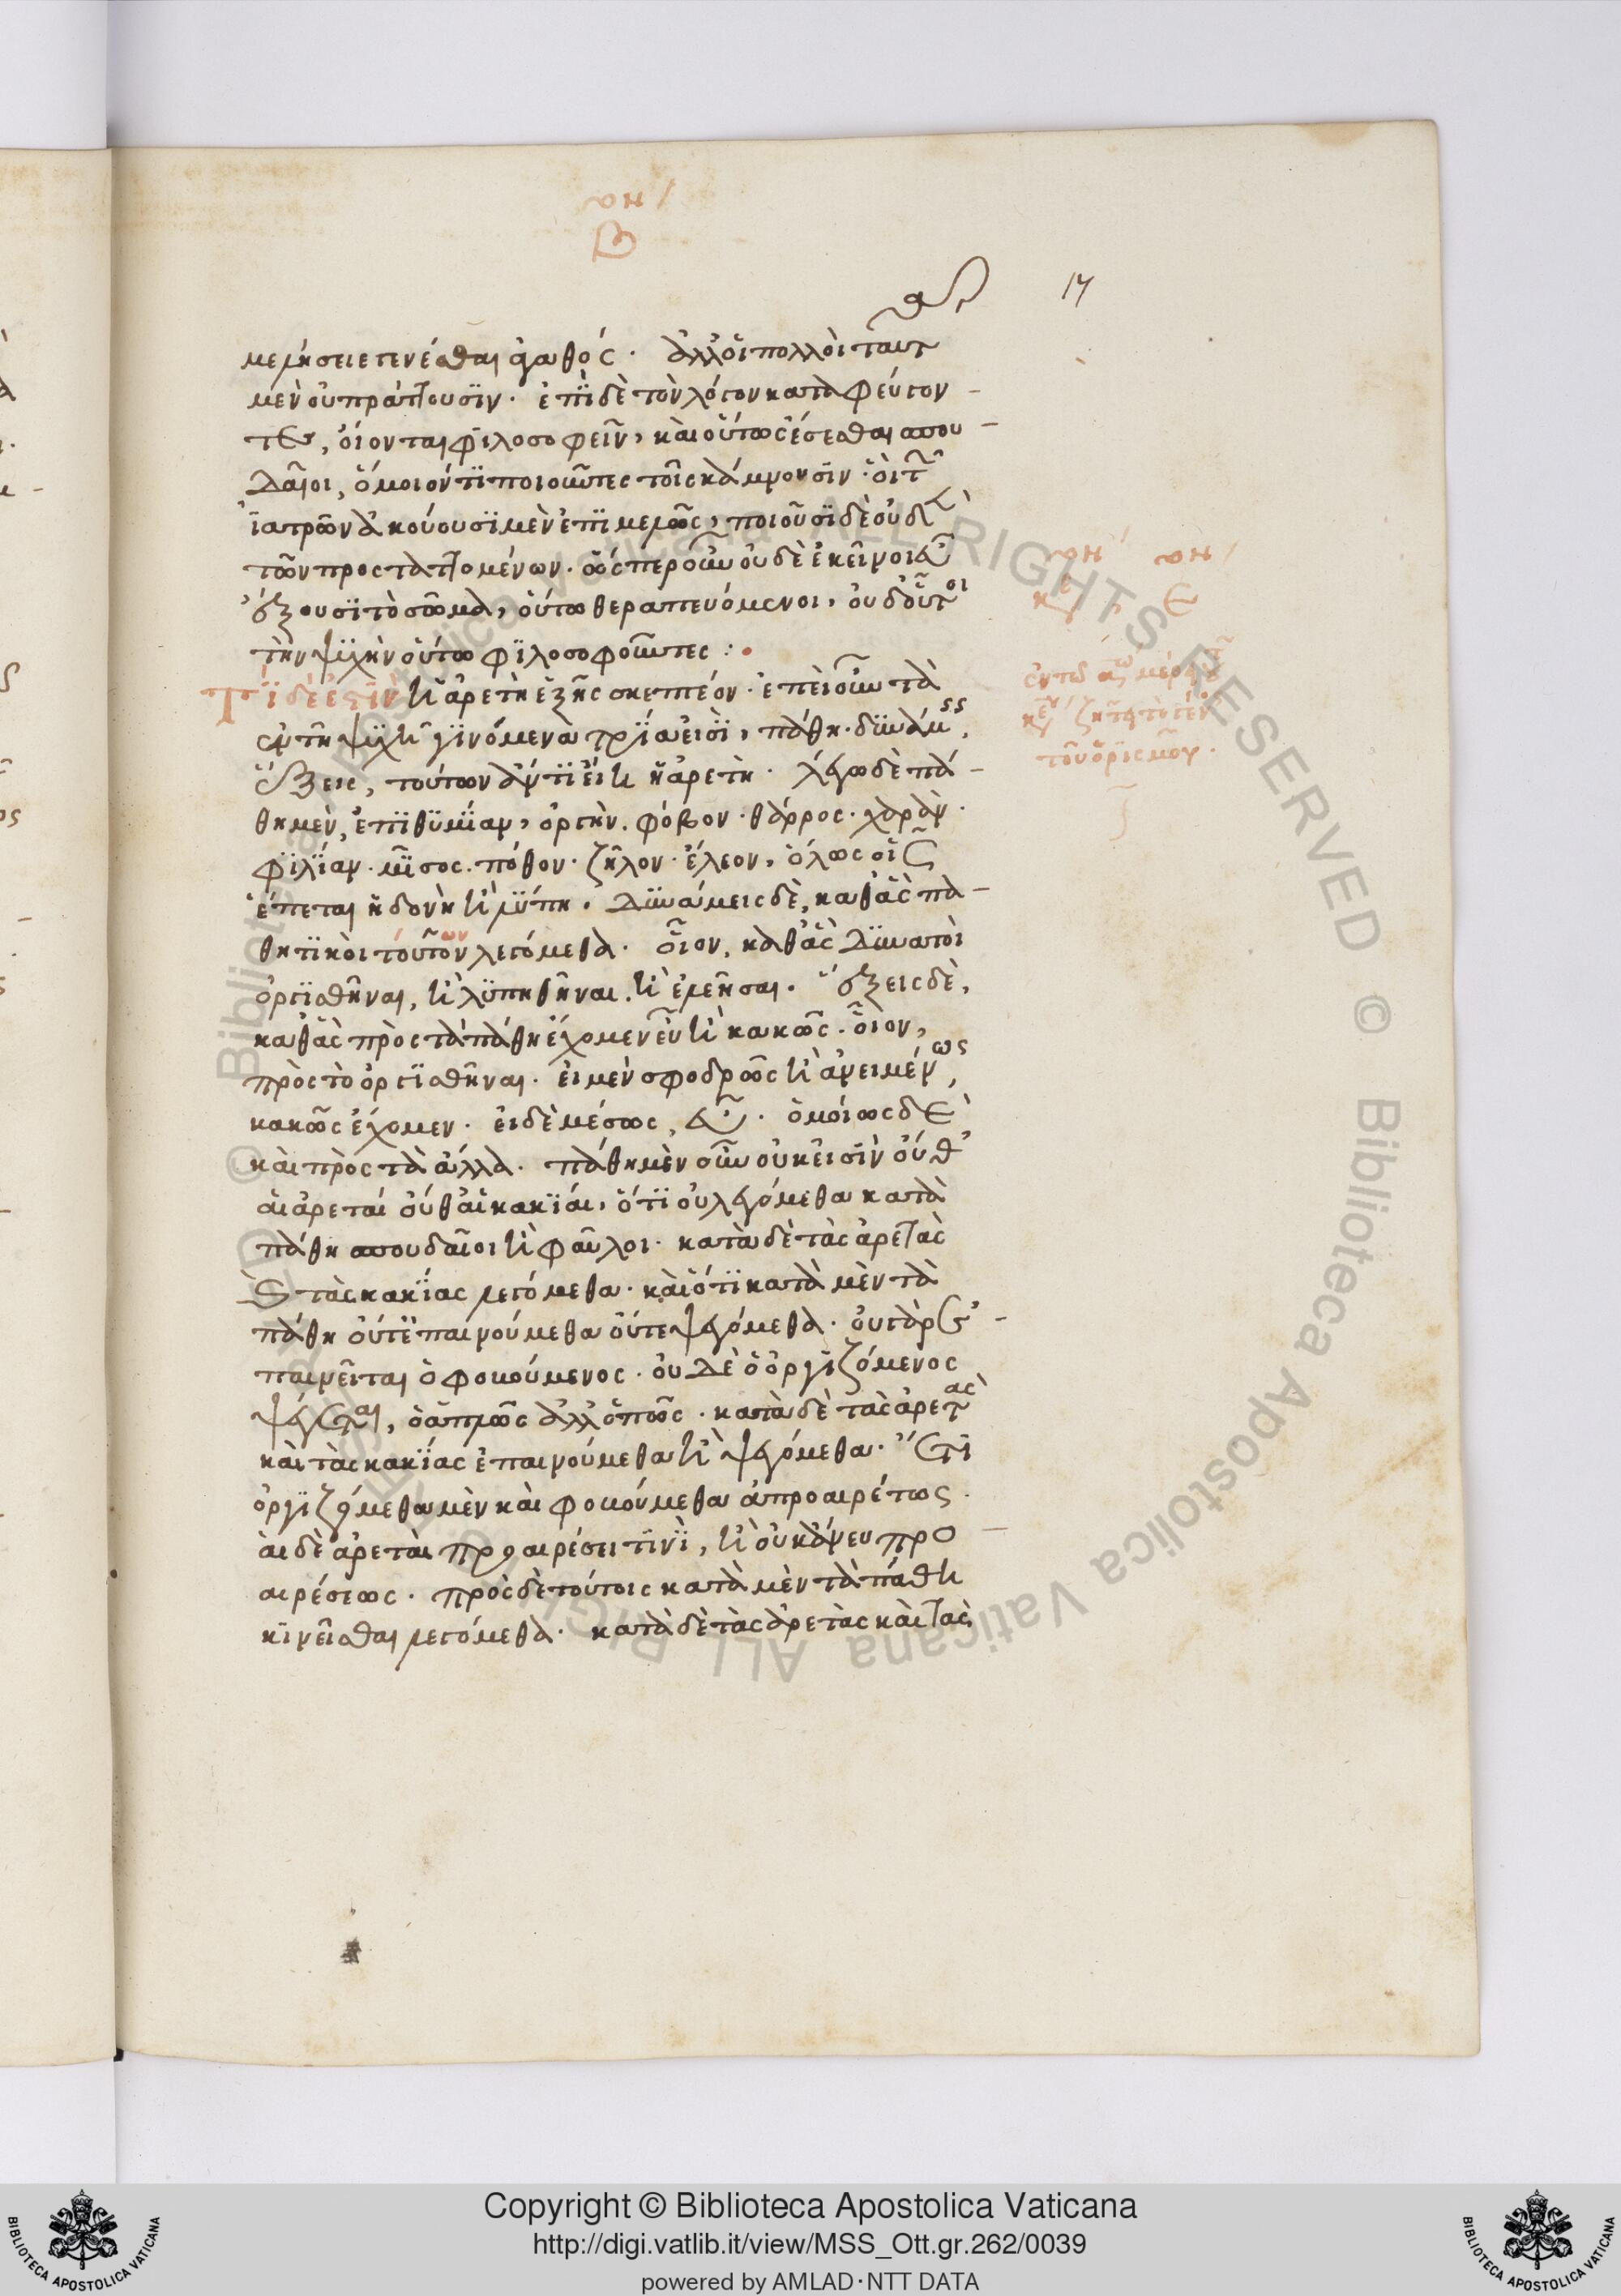 βι
β
17
μελήσειε γενέσθαι ἀγαθός. ἀλλ' οἱ πολλοὶ ταῦτα
μὲν οὐ πράττουσϊν. ἐπῒ δὲ τὸν λόγον καταφεύγον-
τες, οἴονται φϊλοσοφεῖν, καὶ οὕτως ἔσεσθαι σπου-
δαῖοι, ὅμοιόν τϊ ποιοῦντες τοῖς κάμνουσϊν· οἳ τῶν
ἰατρῶν ἀκούουσϊ μὲν ἐπιμελῶς, ποιοῦσϊ δὲ οὐδὲν
τῶν προσταττομένων. ὥσπερ οὖν οὐδὲ ἐκεῖνοι εὖ
ἕξουσϊ τὸ σῶμα, οὕτω θεραπευόμενοι, οὐδ' οὗτοι
τὴν ψϋχὴν οὕτω φϊλοσοφοῦντες :
Τί δέ ἐστϊν ἡ ἀρετὴ ἑξῆς σκεπτέον. ἐπεὶ οὖν τὰ
ἐν τῆ ψϋχῆ γϊνόμενα τρία εἰσϊ, πάθη. δϋνάμεις,
ἕξεις, τούτων ἄν τϊ εἴη ἡ ἀρετή. λέγω δὲ πά-
θη μὲν, ἐπϊθϋμίαν, ὀργήν. φόβον. θάρρος. χαράν.
φϊλίαν. μῖσος. πόθον. ζῆλον. ἔλεον, ὅλως οἷς
ἕπεται ἡδονὴ ἢ λύπη. Δϋνάμεις δὲ, καθ' ἃς πα-
θητϊκοὶ τούτων λεγόμεθα. οἷον, καθ' ἃς δϋνατοὶ
ὀργϊσθῆναι, ἢ λϋπηθῆναι. ἢ ἐλεῆσαι. ἕξεις δὲ,
καθ' ἃς πρὸς τὰ πάθη ἔχομεν εὖ ἢ κακῶς. οἷον,
πρὸς τὸ ὀργϊσθῆναι. εἰ μὲν σφοδρῶς ἢ ἀνειμένως,
κακῶς ἔχομεν. εἰ δὲ μέσως, εὖ. ὁμοίως δὲ
καὶ πρὸς τὰ ἄλλα. πάθη μὲν οὖν οὐκ εἰσὶν οὔθ'
αἱ ἀρεταί οὔθ' αἱ κακίαι, ὅτϊ οὐ λεγόμεθα κατὰ
πάθη σπουδαῖοι ἢ φαῦλοι. κατὰ δὲ τὰς ἀρετὰς
καὶ τὰς κακίας λεγόμεθα. καὶ ὅτϊ κατὰ μὲν τὰ
πάθη οὔτ' ἐπαινούμεθα οὔτε ψεγόμεθα. οὐ γὰρ ἐ-
παινεῖται ὁ φοβούμενος. οὐδὲ ὁ ὀργϊζόμενος
ψέγεται, ὁ ἁπλῶς ἀλλ' ὁ πῶς. κατὰ δὲ τὰς ἀρετὰς
καὶ τὰς κακίας ἐπαινούμεθα ἢ ψεγόμεθα. ἔτϊ
ὀργϊζόμεθα μὲν καὶ φοβούμεθα ἀπροαιρέτως.
αἱ δὲ ἀρεταὶ προαιρέσει τϊνϊ, ἢ οὐκ ἄνευ προ-
αιρέσεως. πρὸς δὲ τούτοις κατὰ μὲν τὰ πάθη
κϊνεῖσθαι λεγόμεθα. κατὰ δὲ τὰς ἀρετὰς καὶ τὰς
Copyright © Biblioteca Apostolica Vaticana
http://digi.vatlib.it/view/MSS_Ott.gr.262/0039
powered by AMLAD·NTT DATA